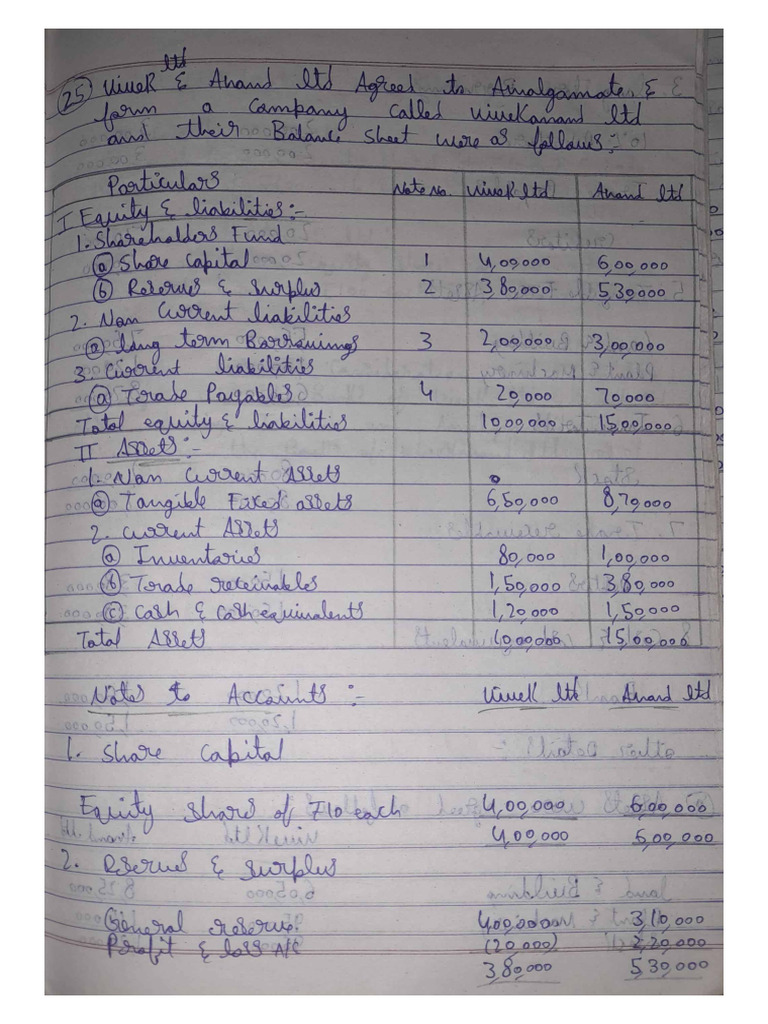 ltd
(25) Vivek & Anand ltd Agreed to Amalgamate &
form a Company called Vivekanand ltd
and their Balance Sheet were as follows:-
Particulars Note No. Vivek ltd Anand ltd
I Equity & liabilities:-
1. Shareholders Fund
(a) Share Capital 1 4,00,000 6,00,000
(b) Reserves & Surplus 2 3,80,000 5,30,000
2. Non Current liabilities
(a) long term Borrowings 3 2,00,000 3,00,000
3. Current liabilities
(a) Trade Payables 4 20,000 70,000
Total equity & liabilities 10,00,000 15,00,000
II Assets:-
1. Non Current Assets
(a) Tangible Fixed assets 6,50,000 8,70,000
2. Current Assets
(a) Inventories 80,000 1,00,000
(b) Trade receivables 1,50,000 3,80,000
(c) Cash & Cash equivalents 1,20,000 1,50,000
Total Assets 10,00,000 15,00,000
Notes to Accounts:- Vivek ltd Anand ltd
1. Share Capital
Equity Share of ₹10 each 4,00,000 6,00,000
4,00,000 6,00,000
2. Reserves & Surplus
General reserve 4,00,000 3,10,000
Profit & loss A/c (20,000) 2,20,000
3,80,000 5,30,000